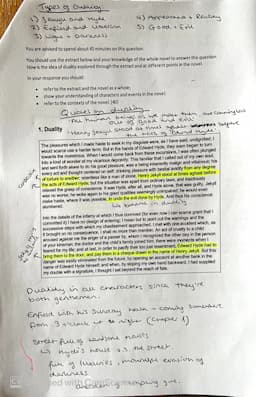 Types of Duality:
1) Jekyll and Hyde
2) Enfield and Utterson
3) Light + Darkness
4) Appearance + Reality
5) Good + Evil
You are advised to spend about 45 minutes on this question.
You should use the extract below and your knowledge of the whole novel to answer this question.
How is the idea of duality explored through the extract and at different points in the novel.
In your response you should:
• refer to the extract and the novel as a whole;
• show your understanding of characters and events in the novel;
• refer to the contexts of the novel. [40]
Quotes on duality
"All human beings as we meet them are commingled out of good and evil"
"Henry Jekyll stood at times aghast before the acts of Edward Hyde"
1. Duality
The pleasures which I made haste to seek in my disguise were, as I have said, undignified; I
would scarce use a harder term. But in the hands of Edward Hyde, they soon began to turn
towards the monstrous. When I would come back from these excursions, I was often plunged
into a kind of wonder at my vicarious depravity. This familiar that I called out of my own soul,
and sent forth alone to do his good pleasure, was a being inherently malign and villainous; his
every act and thought centered on self; drinking pleasure with bestial avidity from any degree
of torture to another; relentless like a man of stone. Henry Jekyll stood at times aghast before
the acts of Edward Hyde; but the situation was apart from ordinary laws, and insidiously
relaxed the grasp of conscience. It was Hyde, after all, and Hyde alone, that was guilty. Jekyll
was no worse; he woke again to his good qualities seemingly unimpaired; he would even
make haste, where it was possible, to undo the evil done by Hyde. And thus his conscience
slumbered.
Into the details of the infamy at which I thus connived (for even now I can scarce grant that I
committed it) I have no design of entering; I mean but to point out the warnings and the
successive steps with which my chastisement approached. I met with one accident which, as
it brought on no consequence, I shall no more than mention. An act of cruelty to a child
aroused against me the anger of a passer by, whom I recognised the other day in the person
of your kinsman; the doctor and the child's family joined him; there were moments when I
feared for my life; and at last, in order to pacify their too just resentment, Edward Hyde had to
bring them to the door, and pay them in a cheque drawn in the name of Henry Jekyll. But this
danger was easily eliminated from the future, by opening an account at another bank in the
name of Edward Hyde himself; and when, by sloping my own hand backward, I had supplied
my double with a signature, I thought I sat beyond the reach of fate.
Duality in all characters since they're
both gentlemen.
Enfield
Sunday walk + coming somewhere
from 3 o'clock at night (Chapter 1)
Street full of handsome
Hyde's house
the street.
full of luxuries,
darkness